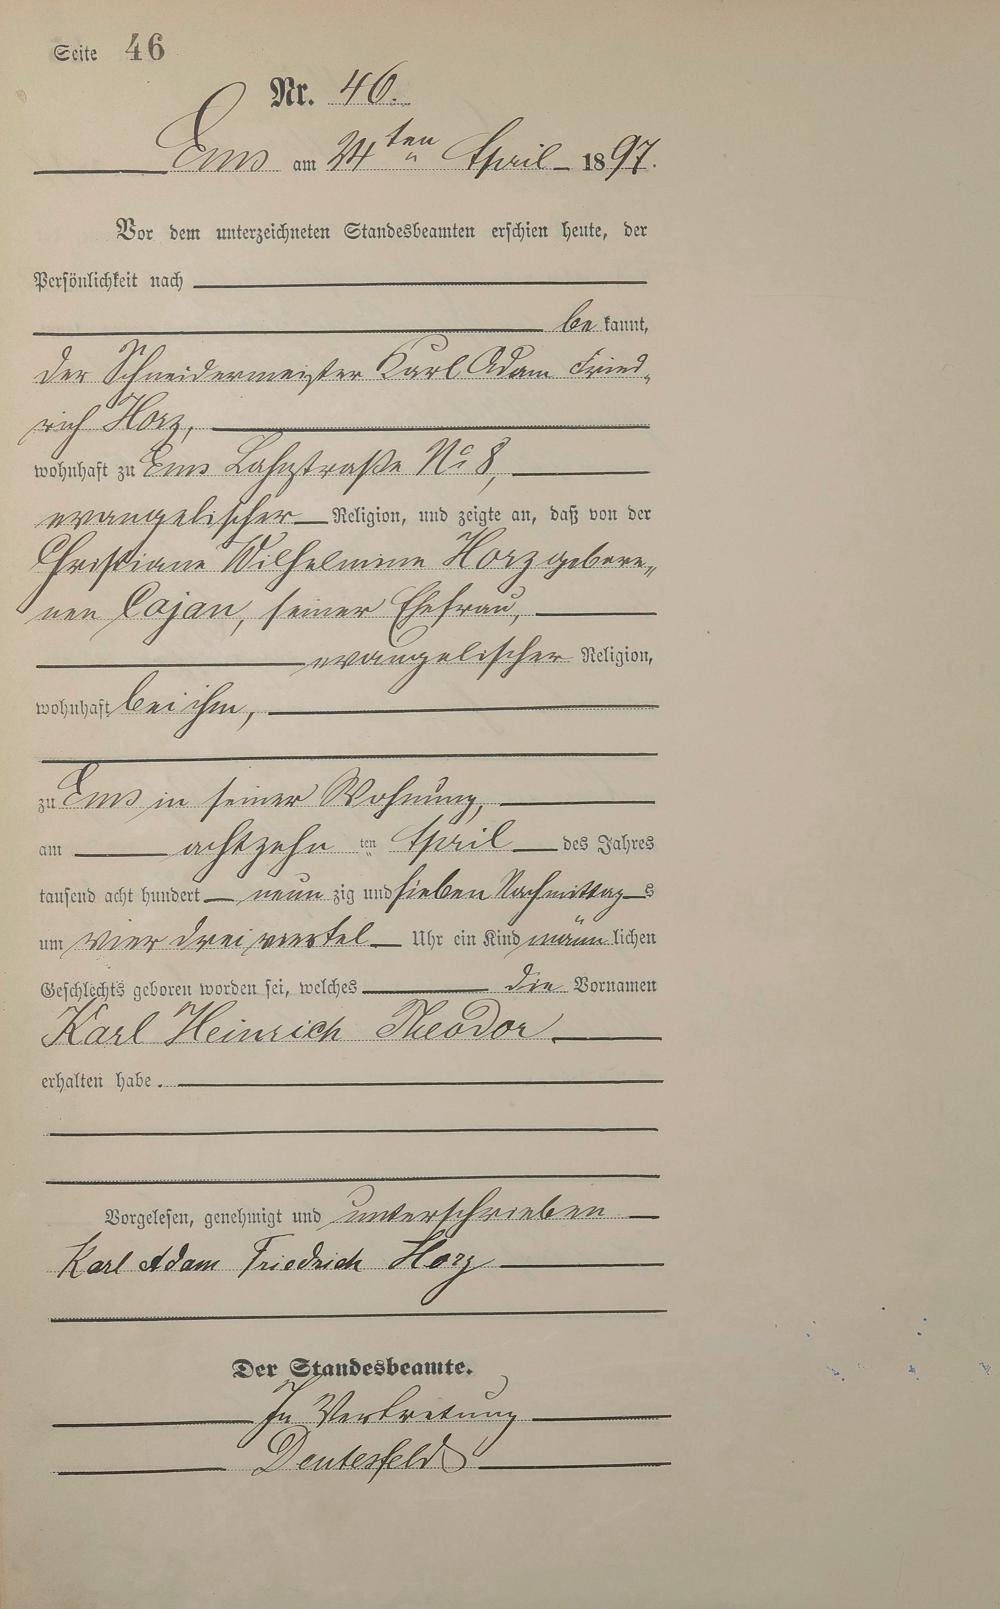 Seite 46
Nr. 46.
Ems am 24ten April 1897.
Vor dem unterzeichneten Standesbeamten erschien heute, der
Persönlichkeit nach
be kannt,
der Schneidermeister Karl Adam Fried-
rich Horz,
wohnhaft zu Ems Lahnstraße No 8,
evangelischer Religion, und zeigte an, daß von der
Christiane Wilhelmine Horz gebore-
nen Cajan, seiner Ehefrau,
evangelischer Religion,
wohnhaft bei ihm,
zu Ems in seiner Wohnung,
am achtzehn ten April des Jahres
tausend acht hundert neun zig und sieben Nachmittag s
um vier drei viertel Uhr ein Kind männ lichen
Geschlechts geboren worden sei, welches die Vornamen
Karl Heinrich Theodor
erhalten habe.
Vorgelesen, genehmigt und unterschrieben
Karl Adam Friedrich Horz
Der Standesbeamte.
In Vertretung
Deutesfeld